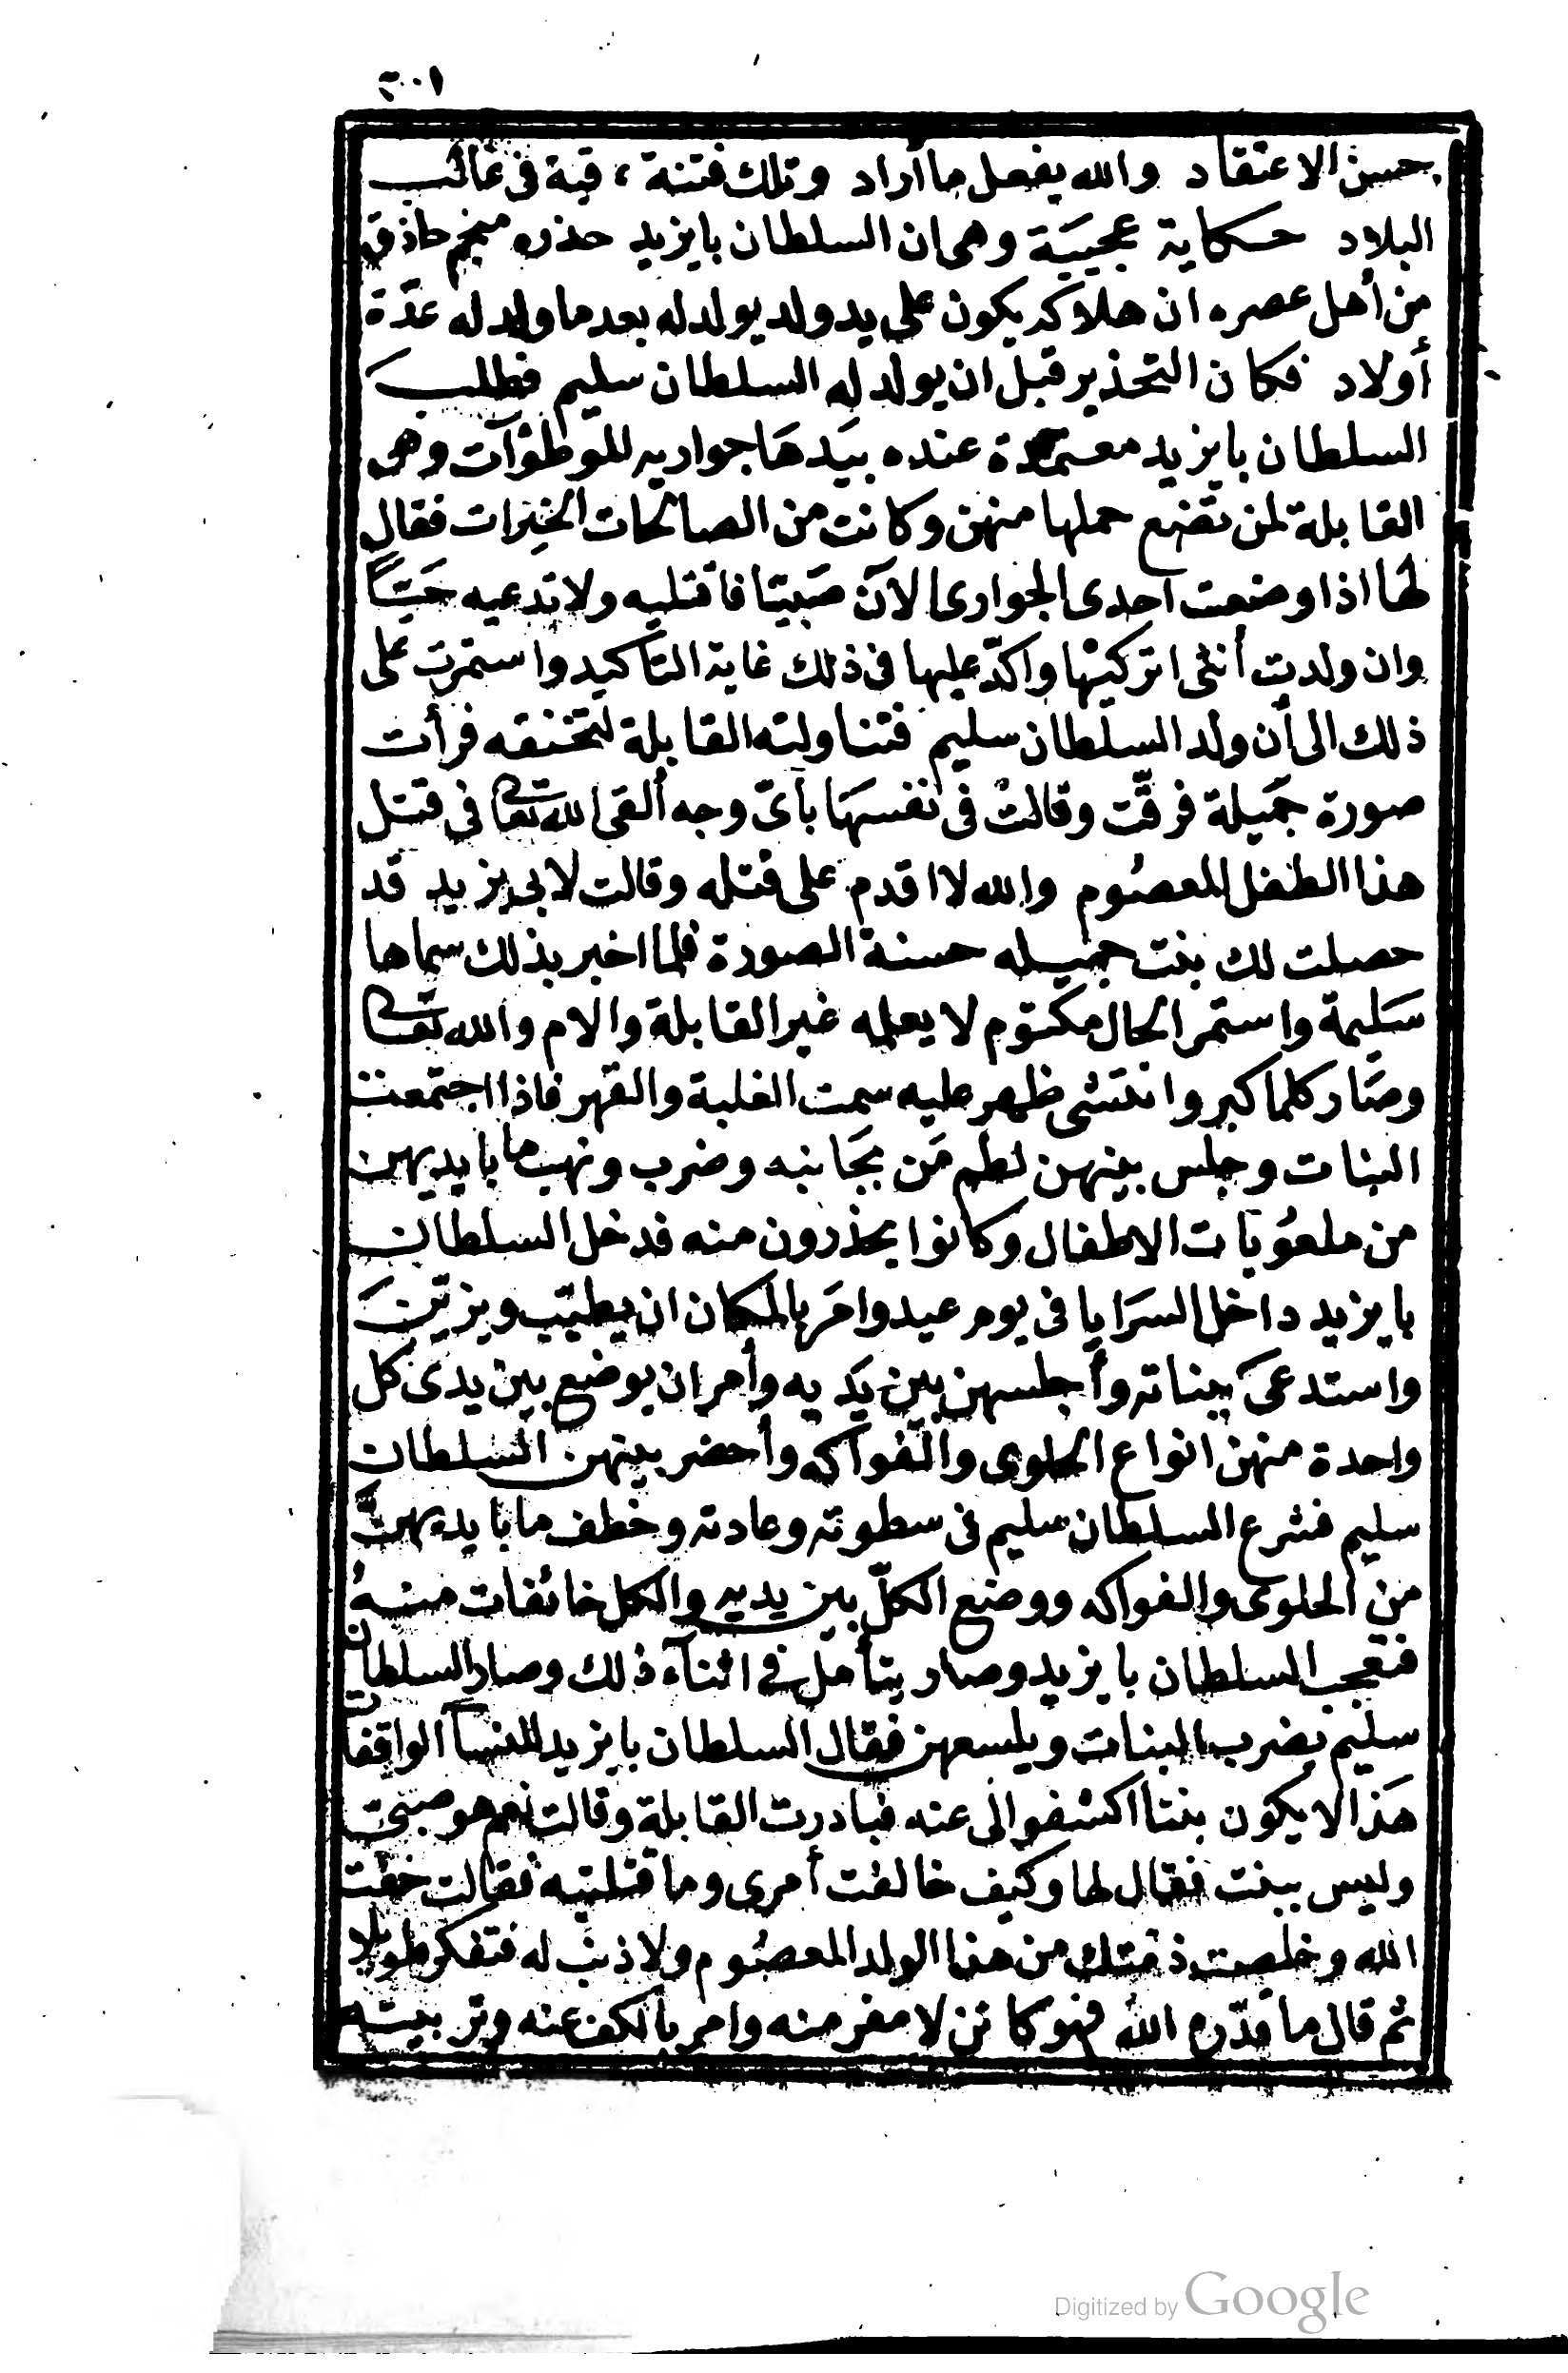 حسن الاعتقاد والله يفعل ما اراد وتلك فتنة باقية فى غالب
البلاد حكاية عجيبة وهى ان السلطان بايزيد حذره منجم حاذق
من أهل عصره ان هلاكه يكون على يد ولد يولد له بعد ما ولد له عدّة
أولاد فكان التحذير قبل ان يولد له السلطان سليم فطلب
السلطان بايزيد معتمدة عنده بيدها جواريه الموطؤآت وهى
القابلة لمن تضع حملها منهن وكانت من الصالحات الخيرات فقال
لها اذا وضعت احدى الجوارى الآن صبيّا فاقتليه ولا تدعيه حيّاً
وان ولدت أنثى اتركيها واكدّ عليها فى ذلك غاية التأكيد واستمرت على
ذلك الى أن ولد السلطان سليم فتناولته القابلة لتخنقه فرأت
صورة جميلة فرقّت وقالت فى نفسها بأىّ وجه ألقى الله تعالى فى قتل
هذا الطفل المعصوم والله لا اقدم على قتله وقالت لابى يزيد قد
حصلت لك بنت جميله حسنة الصورة فلما اخبر بذلك سماها
سليمة واستمر الحال مكتوم لا يعلمه غير القابلة والام والله تعالى
وصار كلما كبر وانتشى ظهر عليه سمت الغلبة والقهر فاذا اجتمعت
البنات وجلس بينهن لطم من بجانبه وضرب ونهب ما بايديهن
من ملعوبات الاطفال وكانوا يحذرون منه فدخل السلطان
بايزيد داخل السرايا فى يوم عيد وامر بالمكان ان يطيّب ويزيّن
واستدعى بيناته وأجلسهن بين يديه وأمر ان يوضع بين يدى كل
واحدة منهن انواع الحلوى والفواكه وأحضر بينهن السلطان
سليم فشرع السلطان سليم فى سطوته وعادته وخطف ما بايديهنّ
من الحلوى والفواكه ووضع الكلّ بين يديه والكل خائفات منه
فتعجب السلطان بايزيد وصار يتأمل فى اثنآء ذلك وصار السلطان
سليم يضرب البنات ويلسعهن فقال السلطان بايزيد للنسآ الواقفات
هذا لا يكون بنتا اكشفوا لى عنه فبادرت القابلة وقالت نعم هو صبىّ
وليس ببنت فقال لها وكيف خالفت أمرى وما قتلتيه فقالت خفت
الله وخلصت ذمتك من هذا الولد المعصوم ولا ذنب له فتفكر طويلا
ثم قال ما قدّره الله فهو كائن لا مفر منه وامر بالكف عنه وتربيته
Digitized by Google